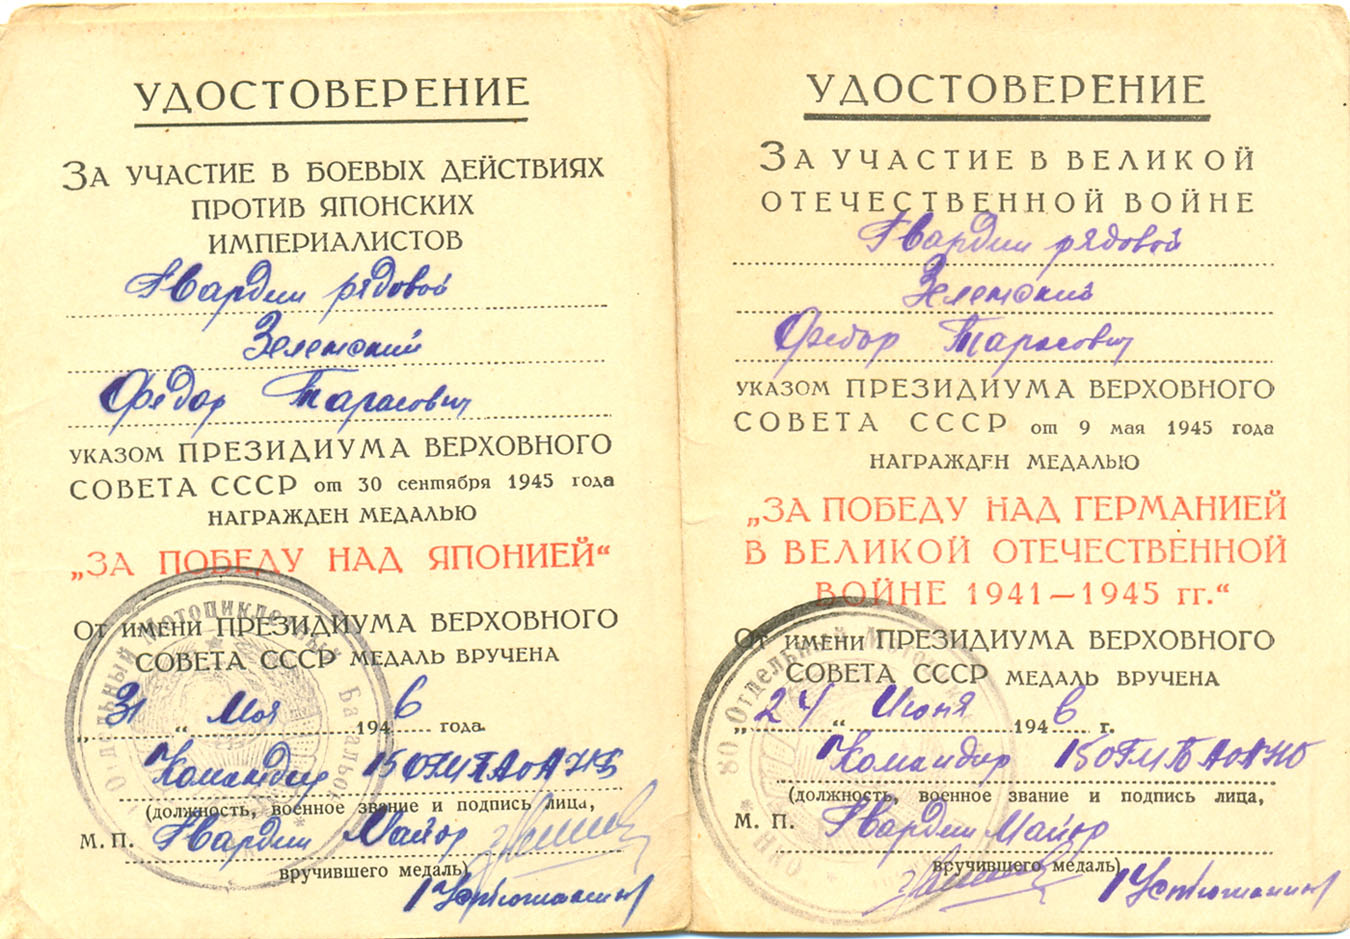 УДОСТОВЕРЕНИЕ
ЗА УЧАСТИЕ В БОЕВЫХ ДЕЙСТВИЯХ
ПРОТИВ ЯПОНСКИХ
ИМПЕРИАЛИСТОВ
Гвардии рядовой
Зелемский
Федор Тарасович
УКАЗОМ ПРЕЗИДИУМА ВЕРХОВНОГО
СОВЕТА СССР от 30 сентября 1945 года
НАГРАЖДЕН МЕДАЛЬЮ
„ЗА ПОБЕДУ НАД ЯПОНИЕЙ“
ОТ ИМЕНИ ПРЕЗИДИУМА ВЕРХОВНОГО
СОВЕТА СССР МЕДАЛЬ ВРУЧЕНА
„31“ Мая 1946 года.
Командир
(должность, военное звание и подпись лица,
М. П. Гвардии Майор
вручившего медаль)
Отдельный Мотоциклетный Батальон
УДОСТОВЕРЕНИЕ
ЗА УЧАСТИЕ В ВЕЛИКОЙ
ОТЕЧЕСТВЕННОЙ ВОЙНЕ
Гвардии рядовой
Зелемский
Федор Тарасович
УКАЗОМ ПРЕЗИДИУМА ВЕРХОВНОГО
СОВЕТА СССР от 9 мая 1945 года
НАГРАЖДЕН МЕДАЛЬЮ
„ЗА ПОБЕДУ НАД ГЕРМАНИЕЙ
В ВЕЛИКОЙ ОТЕЧЕСТВЕННОЙ
ВОЙНЕ 1941—1945 гг.“
ОТ ИМЕНИ ПРЕЗИДИУМА ВЕРХОВНОГО
СОВЕТА СССР МЕДАЛЬ ВРУЧЕНА
„24“ Июня 1946 г.
Командир
(должность, военное звание и подпись лица,
М. П. Гвардии Майор
вручившего медаль)
Отдельный